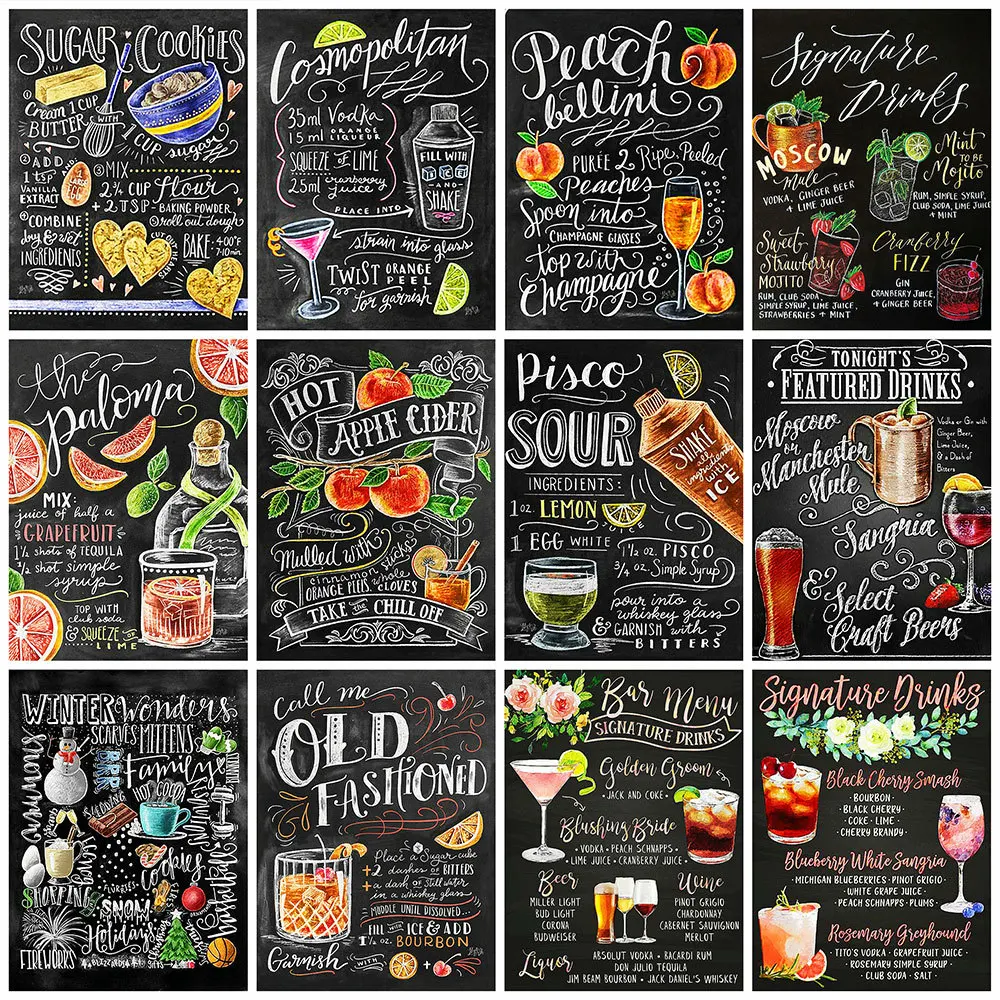 SUGAR COOKIES
① Cream 1 CUP
BUTTER WITH
1 CUP sugar
② ADD
1 tsp
VANILLA
EXTRACT
1 LARGE EGG
③ MIX
2 3/4 CUP flour
+ 2 TSP BAKING POWDER
④ COMBINE
dry & wet
INGREDIENTS
⑤ roll out dough
CUT OUT HEARTS
BAKE 400°F
7-10 min
Cosmopolitan
35ml Vodka
15ml ORANGE
LIQUEUR
SQUEEZE OF LIME
25ml cranberry
juice
PLACE INTO
FILL WITH
ICE
AND
SHAKE
strain into glass
TWIST ORANGE
PEEL
for garnish
Peach
bellini
PURÉE 2 Ripe, Peeled
Peaches
Spoon into
CHAMPAGNE GLASSES
top with
Champagne
Signature
Drinks
MOSCOW
Mule
VODKA, GINGER BEER
+ LIME JUICE
Mint
TO BE
Mojito
RUM, SIMPLE SYRUP,
CLUB SODA, LIME JUICE
+ MINT
Sweet
Strawberry
MOJITO
RUM, CLUB SODA,
SIMPLE SYRUP, LIME JUICE,
STRAWBERRIES + MINT
Cranberry
FIZZ
GIN
CRANBERRY JUICE,
+ GINGER BEER
the
paloma
MIX:
juice of half a
GRAPEFRUIT
1 1/2 shots of TEQUILA
1/2 shot simple
syrup
TOP WITH
club soda
& SQUEEZE OF
LIME
HOT
APPLE CIDER
Mulled with
cinnamon sticks
ORANGE PEELS & whole
CLOVES
TAKE THE CHILL OFF
Pisco
SOUR
SHAKE
all
ingredients
with
ICE
INGREDIENTS:
1 oz. LEMON
JUICE
1 EGG WHITE
1 1/2 oz. PISCO
3/4 oz. Simple Syrup
pour into a
whiskey glass
& GARNISH with
BITTERS
TONIGHT'S
• FEATURED DRINKS •
Moscow
or
Manchester
Mule
Vodka or Gin with
Ginger Beer,
Lime Juice,
& a Dash of
Bitters
Sangria
& Select
Craft Beers
WINTER Wonders
SCARVES MITTENS
BRRR
Family
SLEDDING
HOT COCOA
Cookies
SHOPPING
FLURRIES
SNOW
Holidays
FIREWORKS
BLIZZARDS
GIFTS
Basketball
Call me
OLD
FASHIONED
Place a Sugar cube
+ 2 dashes of BITTERS
+ a dash of Still water
in a whiskey glass
MUDDLE UNTIL DISSOLVED...
FILL WITH ICE & ADD
1 1/2 oz. BOURBON
Garnish WITH
+
Bar Menu
SIGNATURE DRINKS
Golden Groom
• JACK AND COKE •
Blushing Bride
• VODKA • PEACH SCHNAPPS •
LIME JUICE • CRANBERRY JUICE
Beer
MILLER LIGHT
BUD LIGHT
CORONA
BUDWEISER
Wine
PINOT GRIGIO
CHARDONNAY
CABERNET SAUVIGNON
MERLOT
Liquor
ABSOLUT VODKA • BACARDI RUM
DON JULIO TEQUILA
JIM BEAM BOURBON • JACK DANIEL'S WHISKEY
Signature Drinks
Black Cherry Smash
• BOURBON •
• BLACK CHERRY •
• COKE • LIME •
• CHERRY BRANDY •
Blueberry White Sangria
• MICHIGAN BLUEBERRIES • PINOT GRIGIO •
• WHITE GRAPE JUICE •
• PEACH SCHNAPPS • PLUMS •
Rosemary Greyhound
• TITO'S VODKA • GRAPEFRUIT JUICE •
• ROSEMARY SIMPLE SYRUP •
• CLUB SODA • SALT •